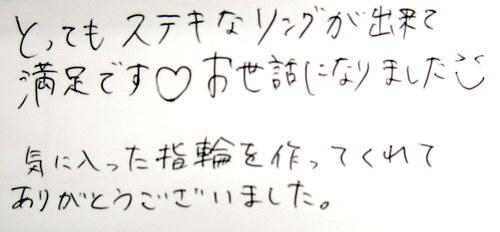 とってもステキなリングが出来て
満足です♡お世話になりました☺
気に入った指輪を作ってくれて
ありがとうございました。